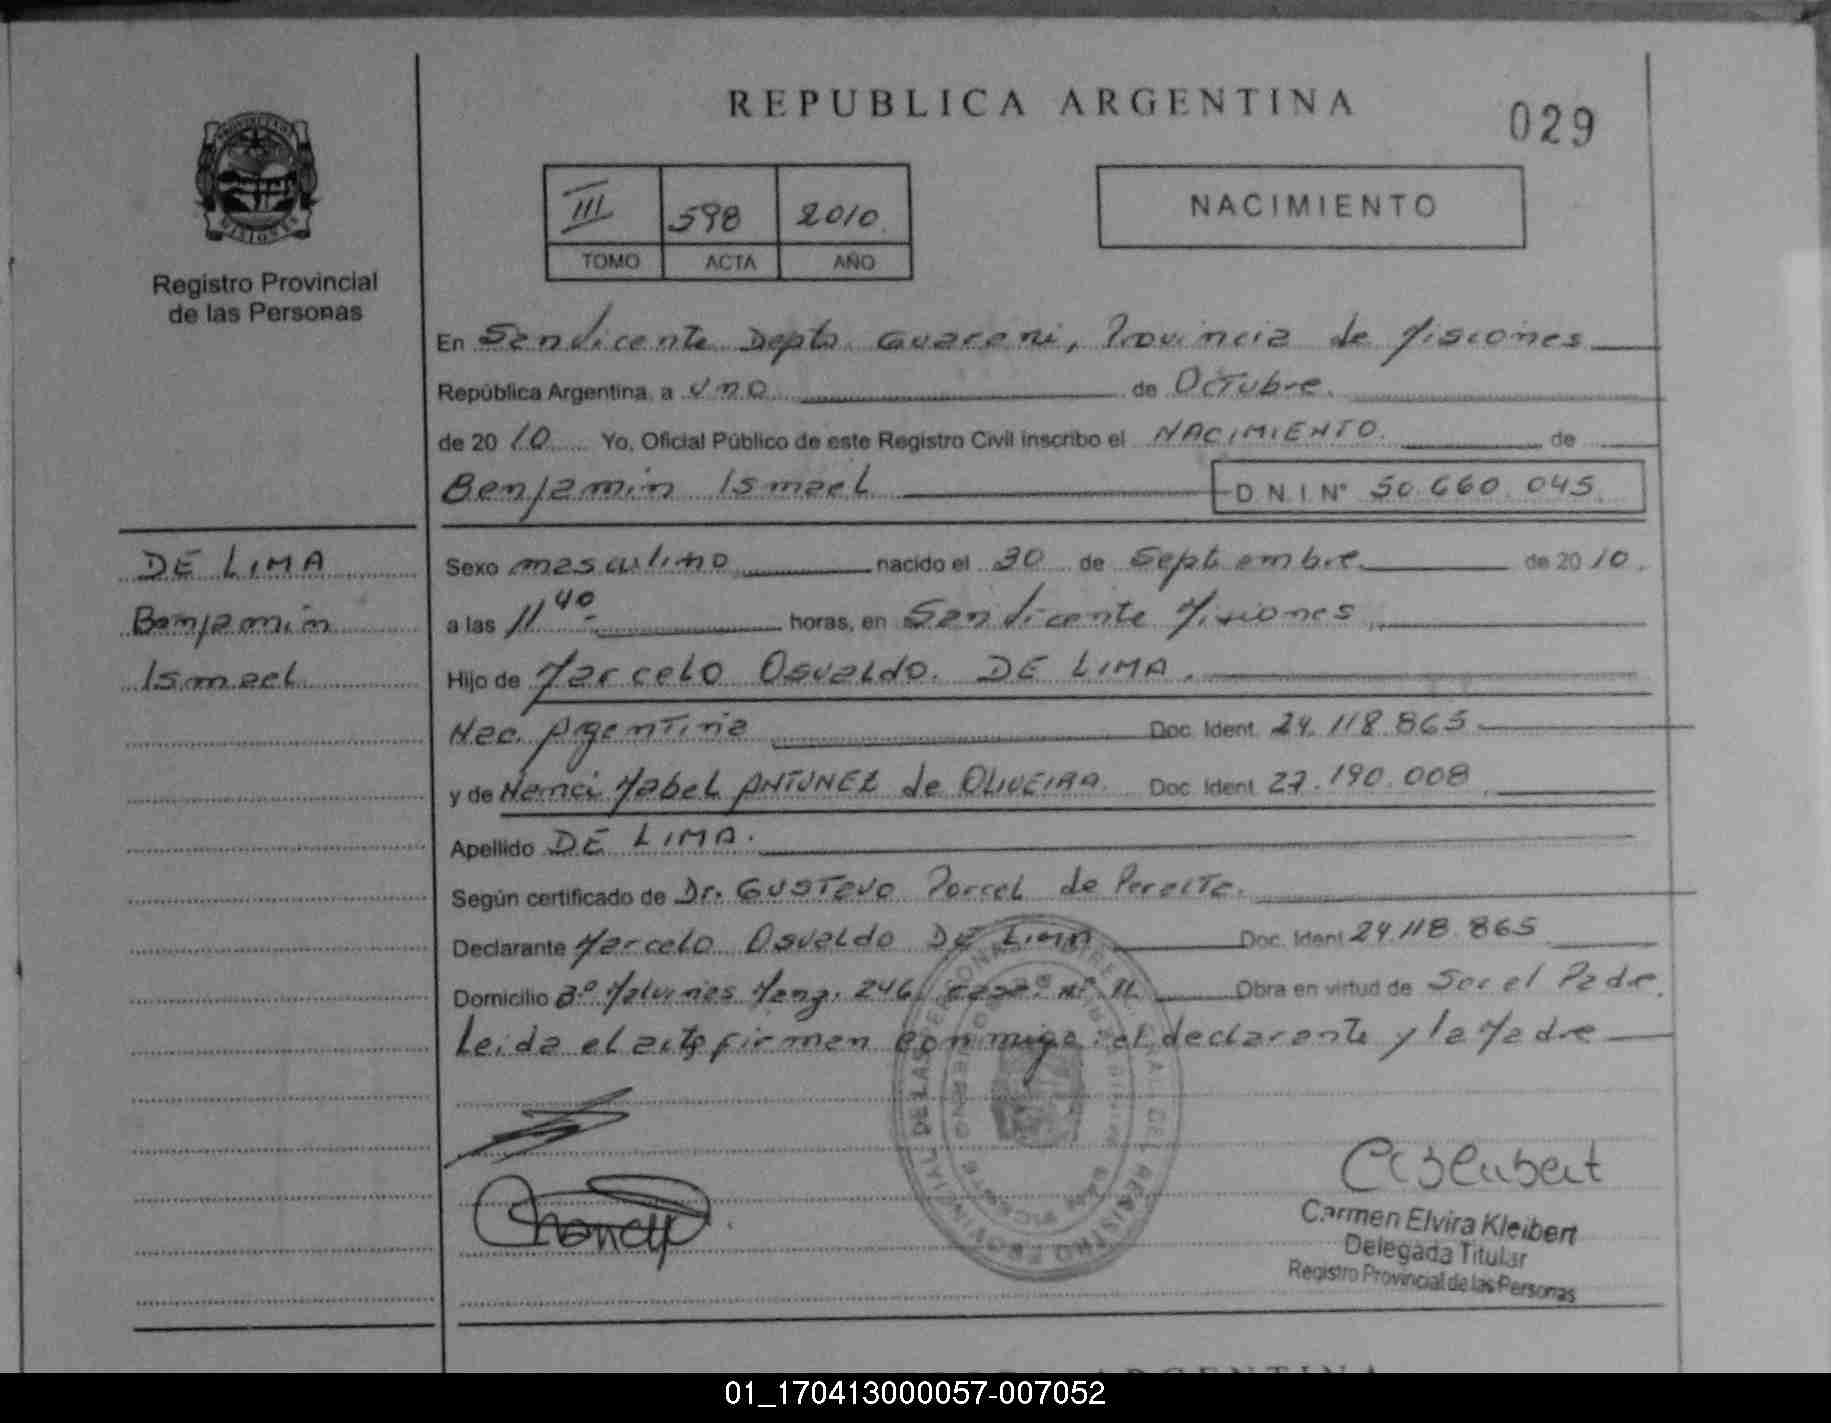 REPUBLICA ARGENTINA
029
PROVINCIA DE
MISIONES
Registro Provincial
de las Personas
III 598 2010
TOMO ACTA AÑO
NACIMIENTO
En San Vicente Depto Guarani, Provincia de Misiones
República Argentina, a uno de Octubre.
de 2010 Yo, Oficial Público de este Registro Civil inscribo el NACIMIENTO. de
Benjamin Ismael D.N.I. N° 50.660.045
DE LIMA
Benjamin
Ismael
Sexo masculino nacido el 30 de Septiembre de 2010.
a las 11 40 horas, en San Vicente Misiones
Hijo de Marcelo Osvaldo. DE LIMA.
Nac. Argentina Doc. Ident. 24.118.865
y de Nanci Mabel ANTUNEZ de OLIVEIRA. Doc. Ident. 27.190.008
Apellido DE LIMA.
Según certificado de Dr. Gustavo Porcel de Peralta.
Declarante Marcelo Osvaldo DE LIMA Doc. Ident. 24.118.865
Domicilio B° Malvinas Manz. 246 casa N° 11 Obra en virtud de Ser el Padre.
Leida el acta firman conmigo el declarante y la Madre
REGISTRO PROVINCIAL DE LAS PERSONAS
SAN VICENTE
Carmen Elvira Kleibert
Delegada Titular
Registro Provincial de las Personas
ARGENTINA
01_170413000057-007052